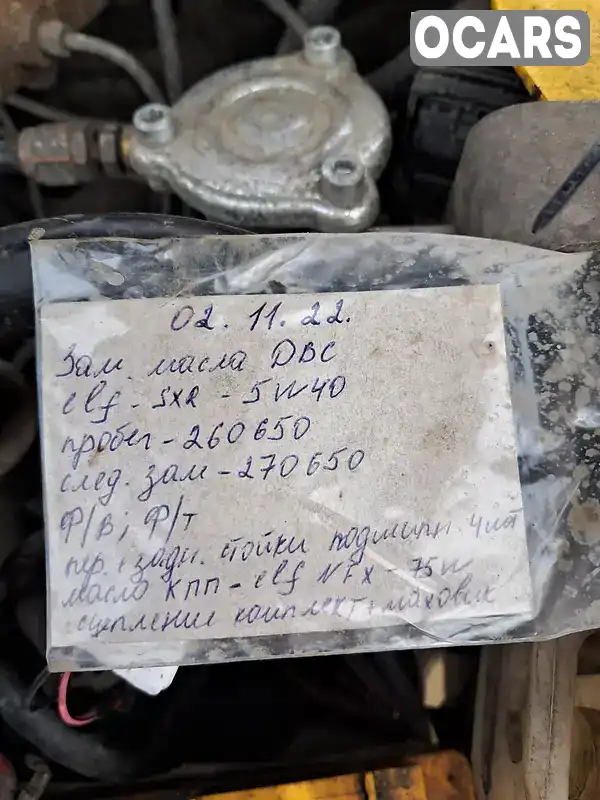 OCARS
02.11.22.
Зам. масла ДВС
elf - SXR - 5W40
пробег - 260650
след. зам - 270650
Ф/В; Ф/Т
пер. + задн. стойки подшипн. 4шт
масло КПП - elf NFX - 75W
сцепление комплект + маховик